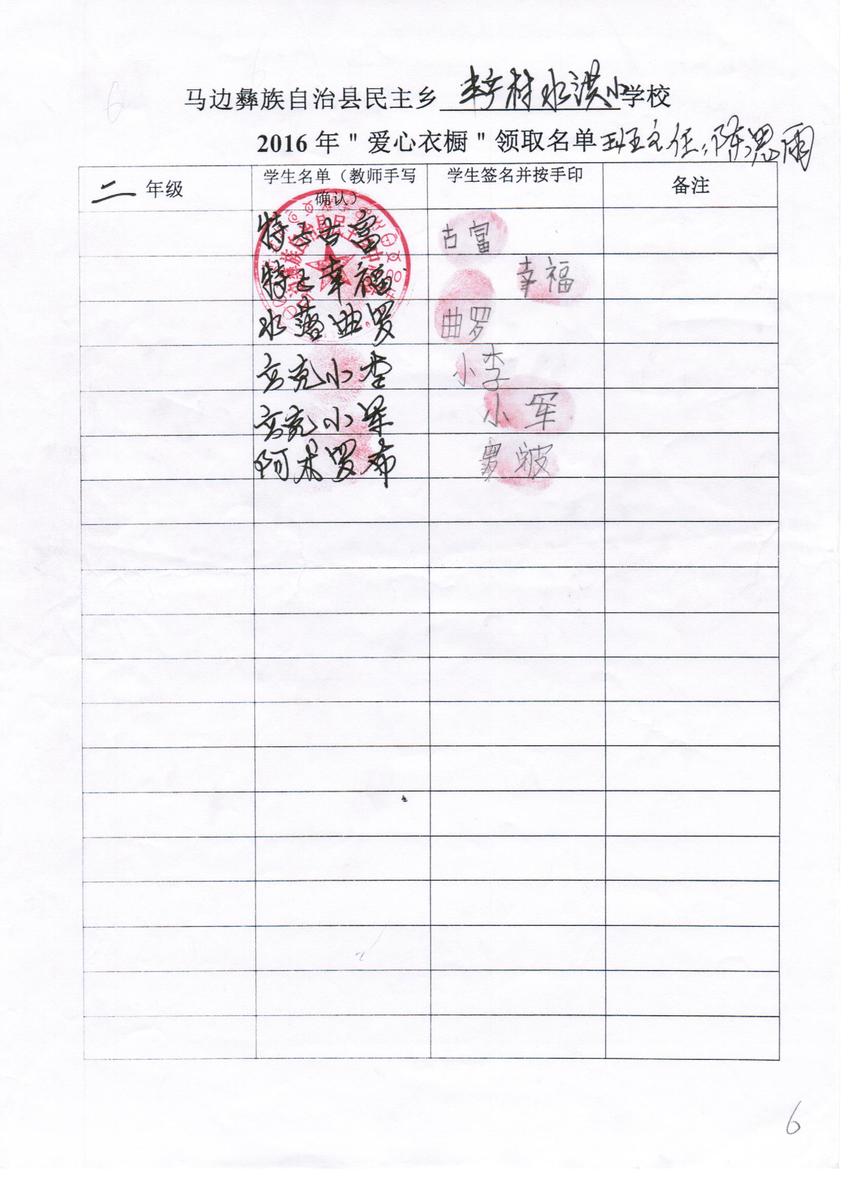 马边彝族自治县民主乡 村水洪小学校
2016 年＂爱心衣橱＂领取名单 班主任：陈思雨
二 年级 学生名单（教师手写确认） 学生签名并按手印 备注
特 古富 古富
特 幸福 幸福
水落曲罗 曲罗
克小李 小李
克小军 小军
阿术罗布 罗波
6